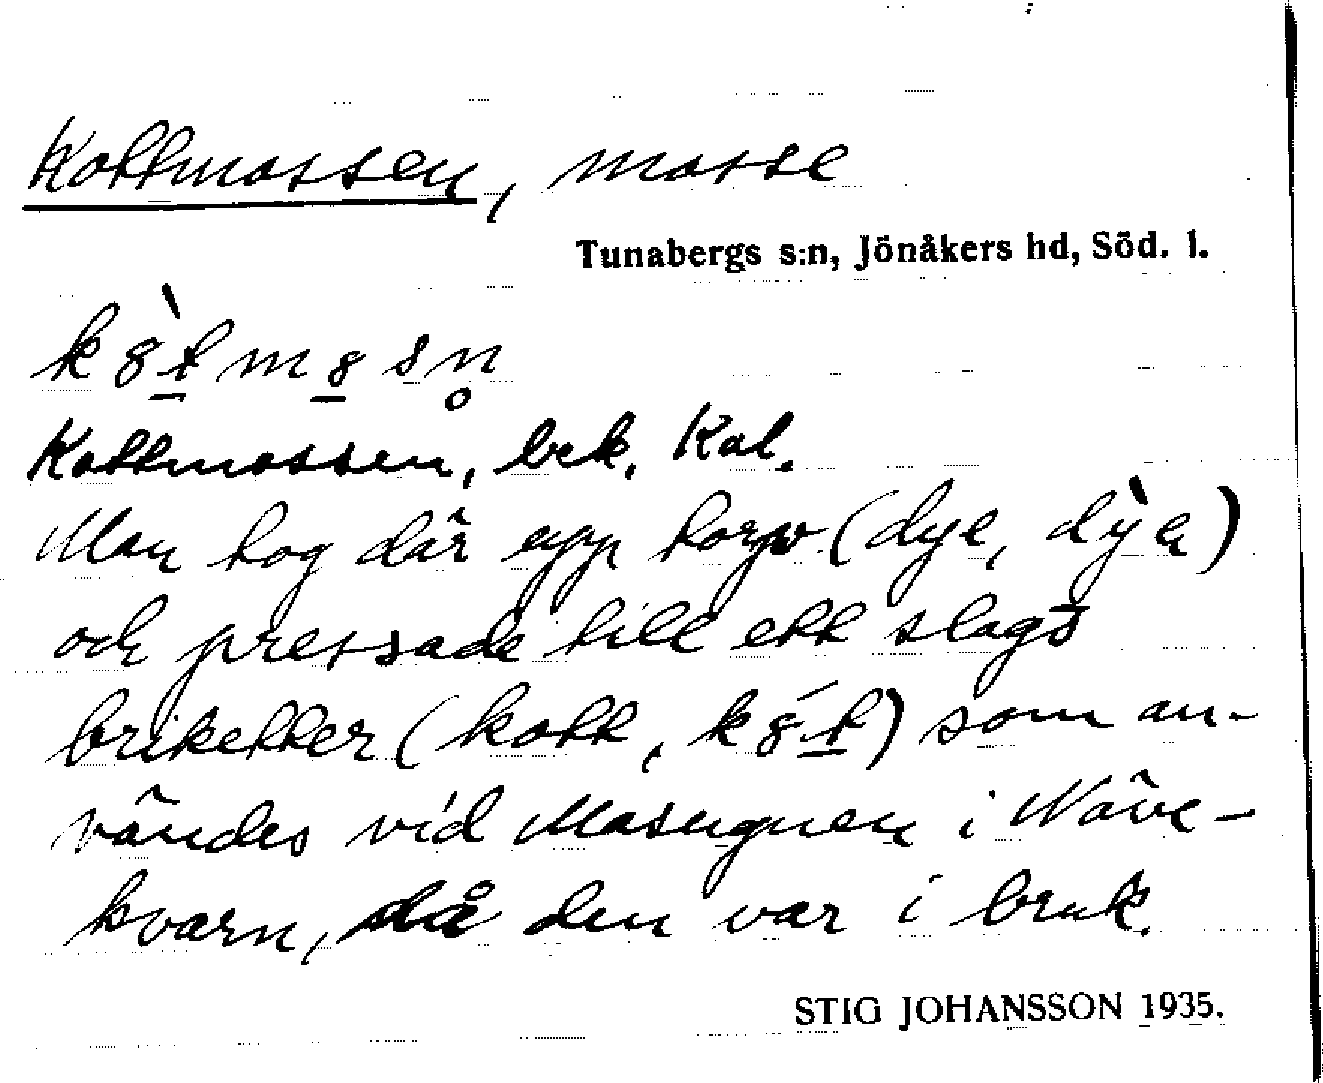 Kottmossen, mosse
Tunabergs s:n, Jönåkers hd, Söd. l.
Kottmossen, bek. Kal.
Man tog där upp torv (dye, dỳe)
och pressade till ett slags
briketter (kott,
som an-
vändes vid Masugnen i Näve-
kvarn, då den var i bruk.
STIG JOHANSSON 1935.